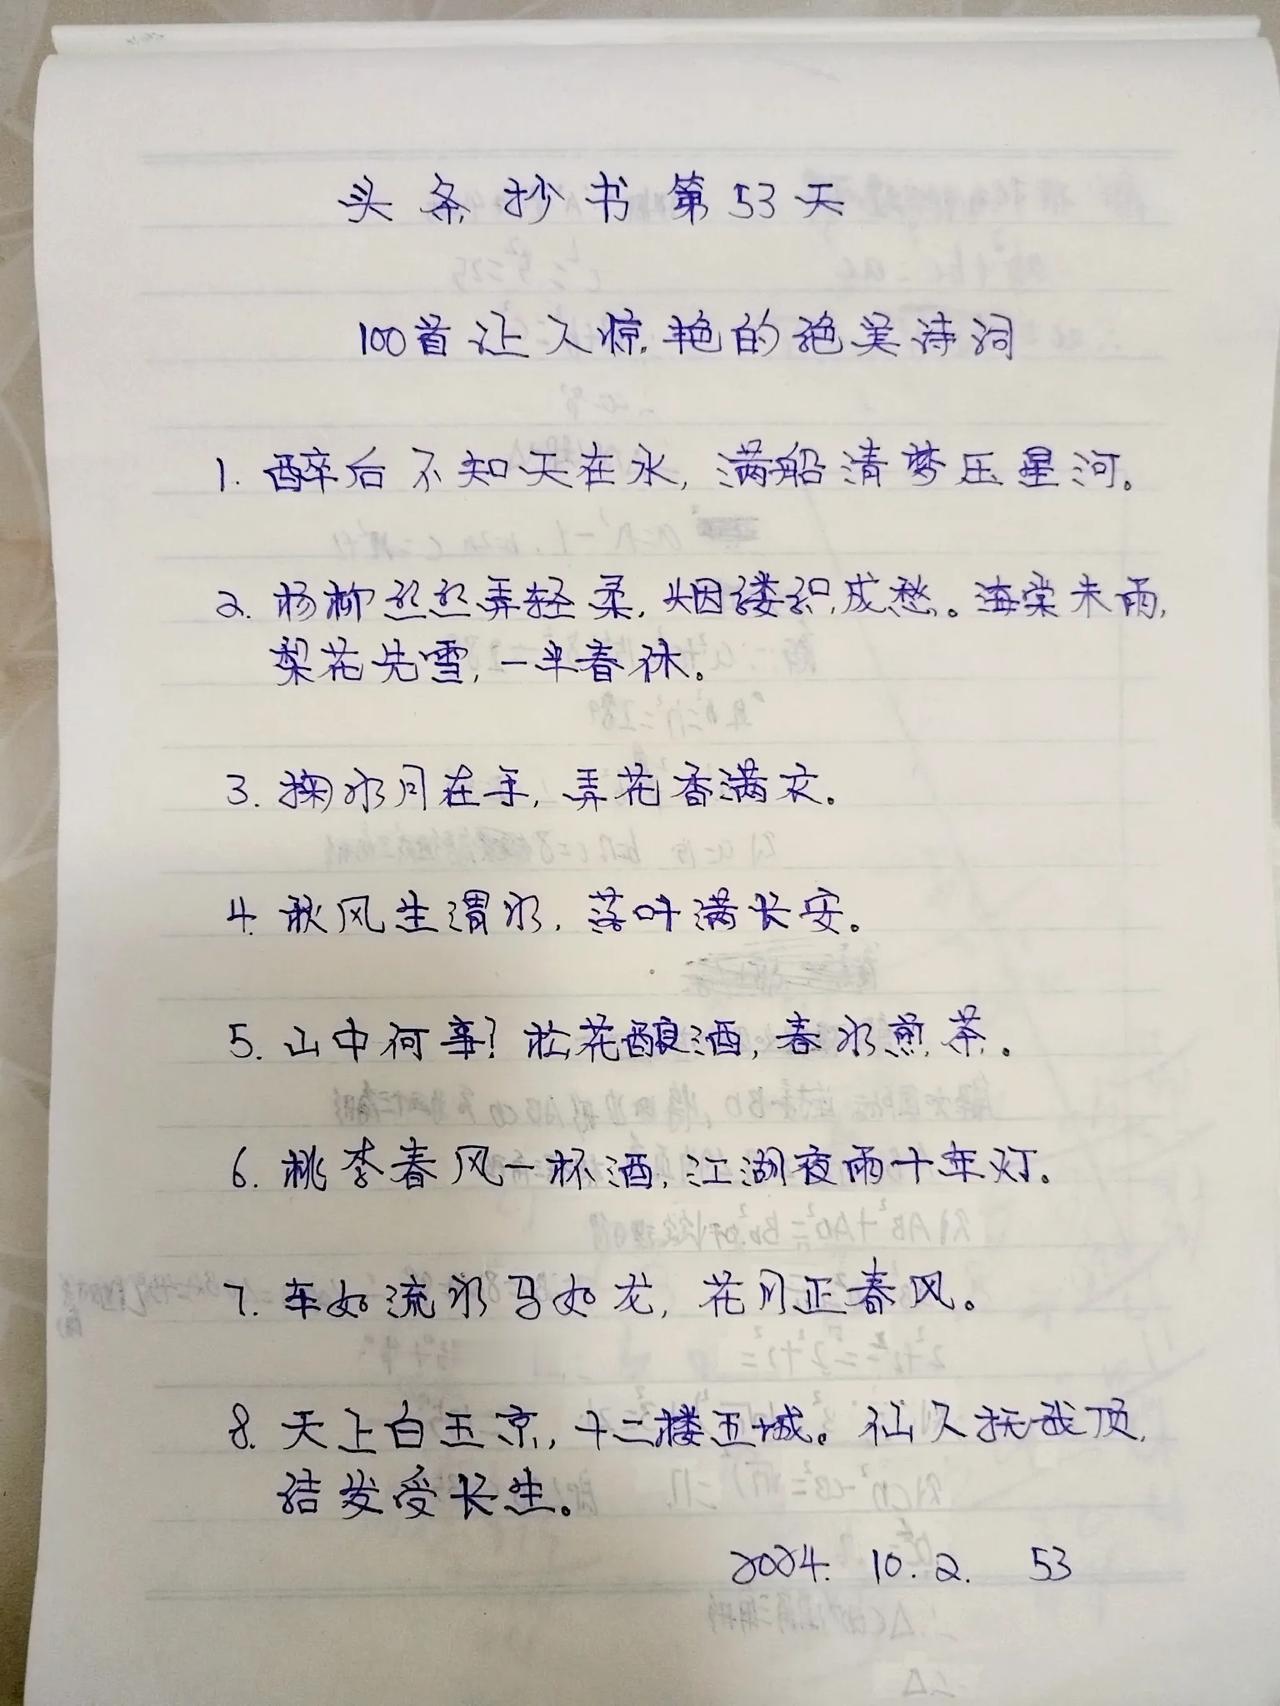 头条抄书第53天
100首让人惊艳的绝美诗词
1. 醉后不知天在水,满船清梦压星河。
2. 杨柳丝丝弄轻柔,烟缕织成愁。海棠未雨,
梨花先雪,一半春休。
3. 掬水月在手,弄花香满衣。
4. 秋风生渭水,落叶满长安。
5. 山中何事?松花酿酒,春水煎茶。
6. 桃李春风一杯酒,江湖夜雨十年灯。
7. 车如流水马如龙,花月正春风。
8. 天上白玉京,十二楼五城。仙人抚我顶,
结发受长生。
2024. 10. 2. 53